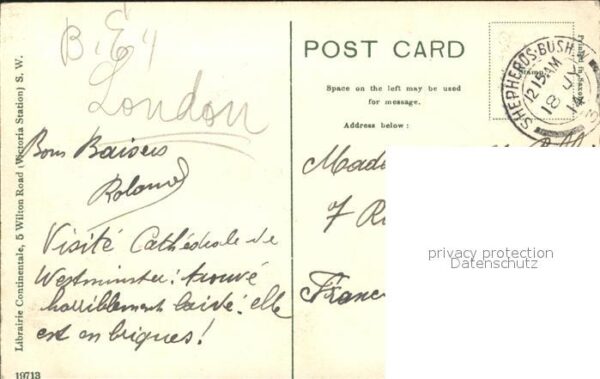 B.E.4
London
Bons Baisers
Roland
Visité Cathédrale de
Westminster: trouvé
horriblement laide: elle
est en briques!
Librairie Continentale, 5 Wilton Road (Victoria Station) S. W.
19713
POST CARD
Space on the left may be used
for message.
Address below:
Printed in Saxony
Stamp
SHEPHERDS-BUSH.
12 15 AM
18 JY
14
Mada
7 R
France
privacy protection
Datenschutz